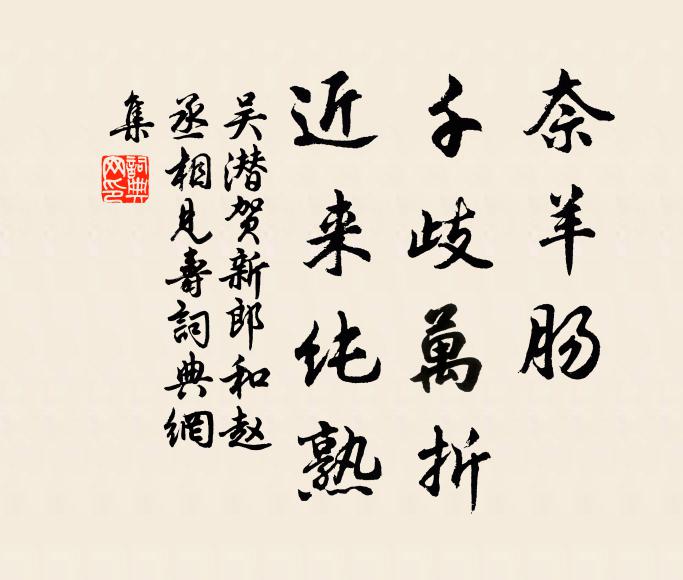 奈羊肠
千歧萬折
近来纯熟
吴潜贺新郎和赵
丞相見壽詞典網
集
詞典
网印